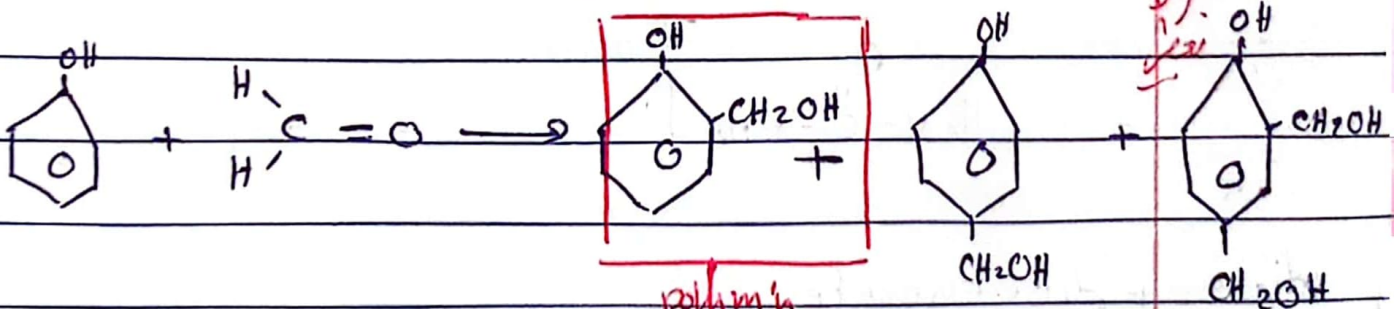 OH
H
H
C = O
+
OH
CH2OH
+
OH
CH2OH
+
OH
CH2OH
CH2OH